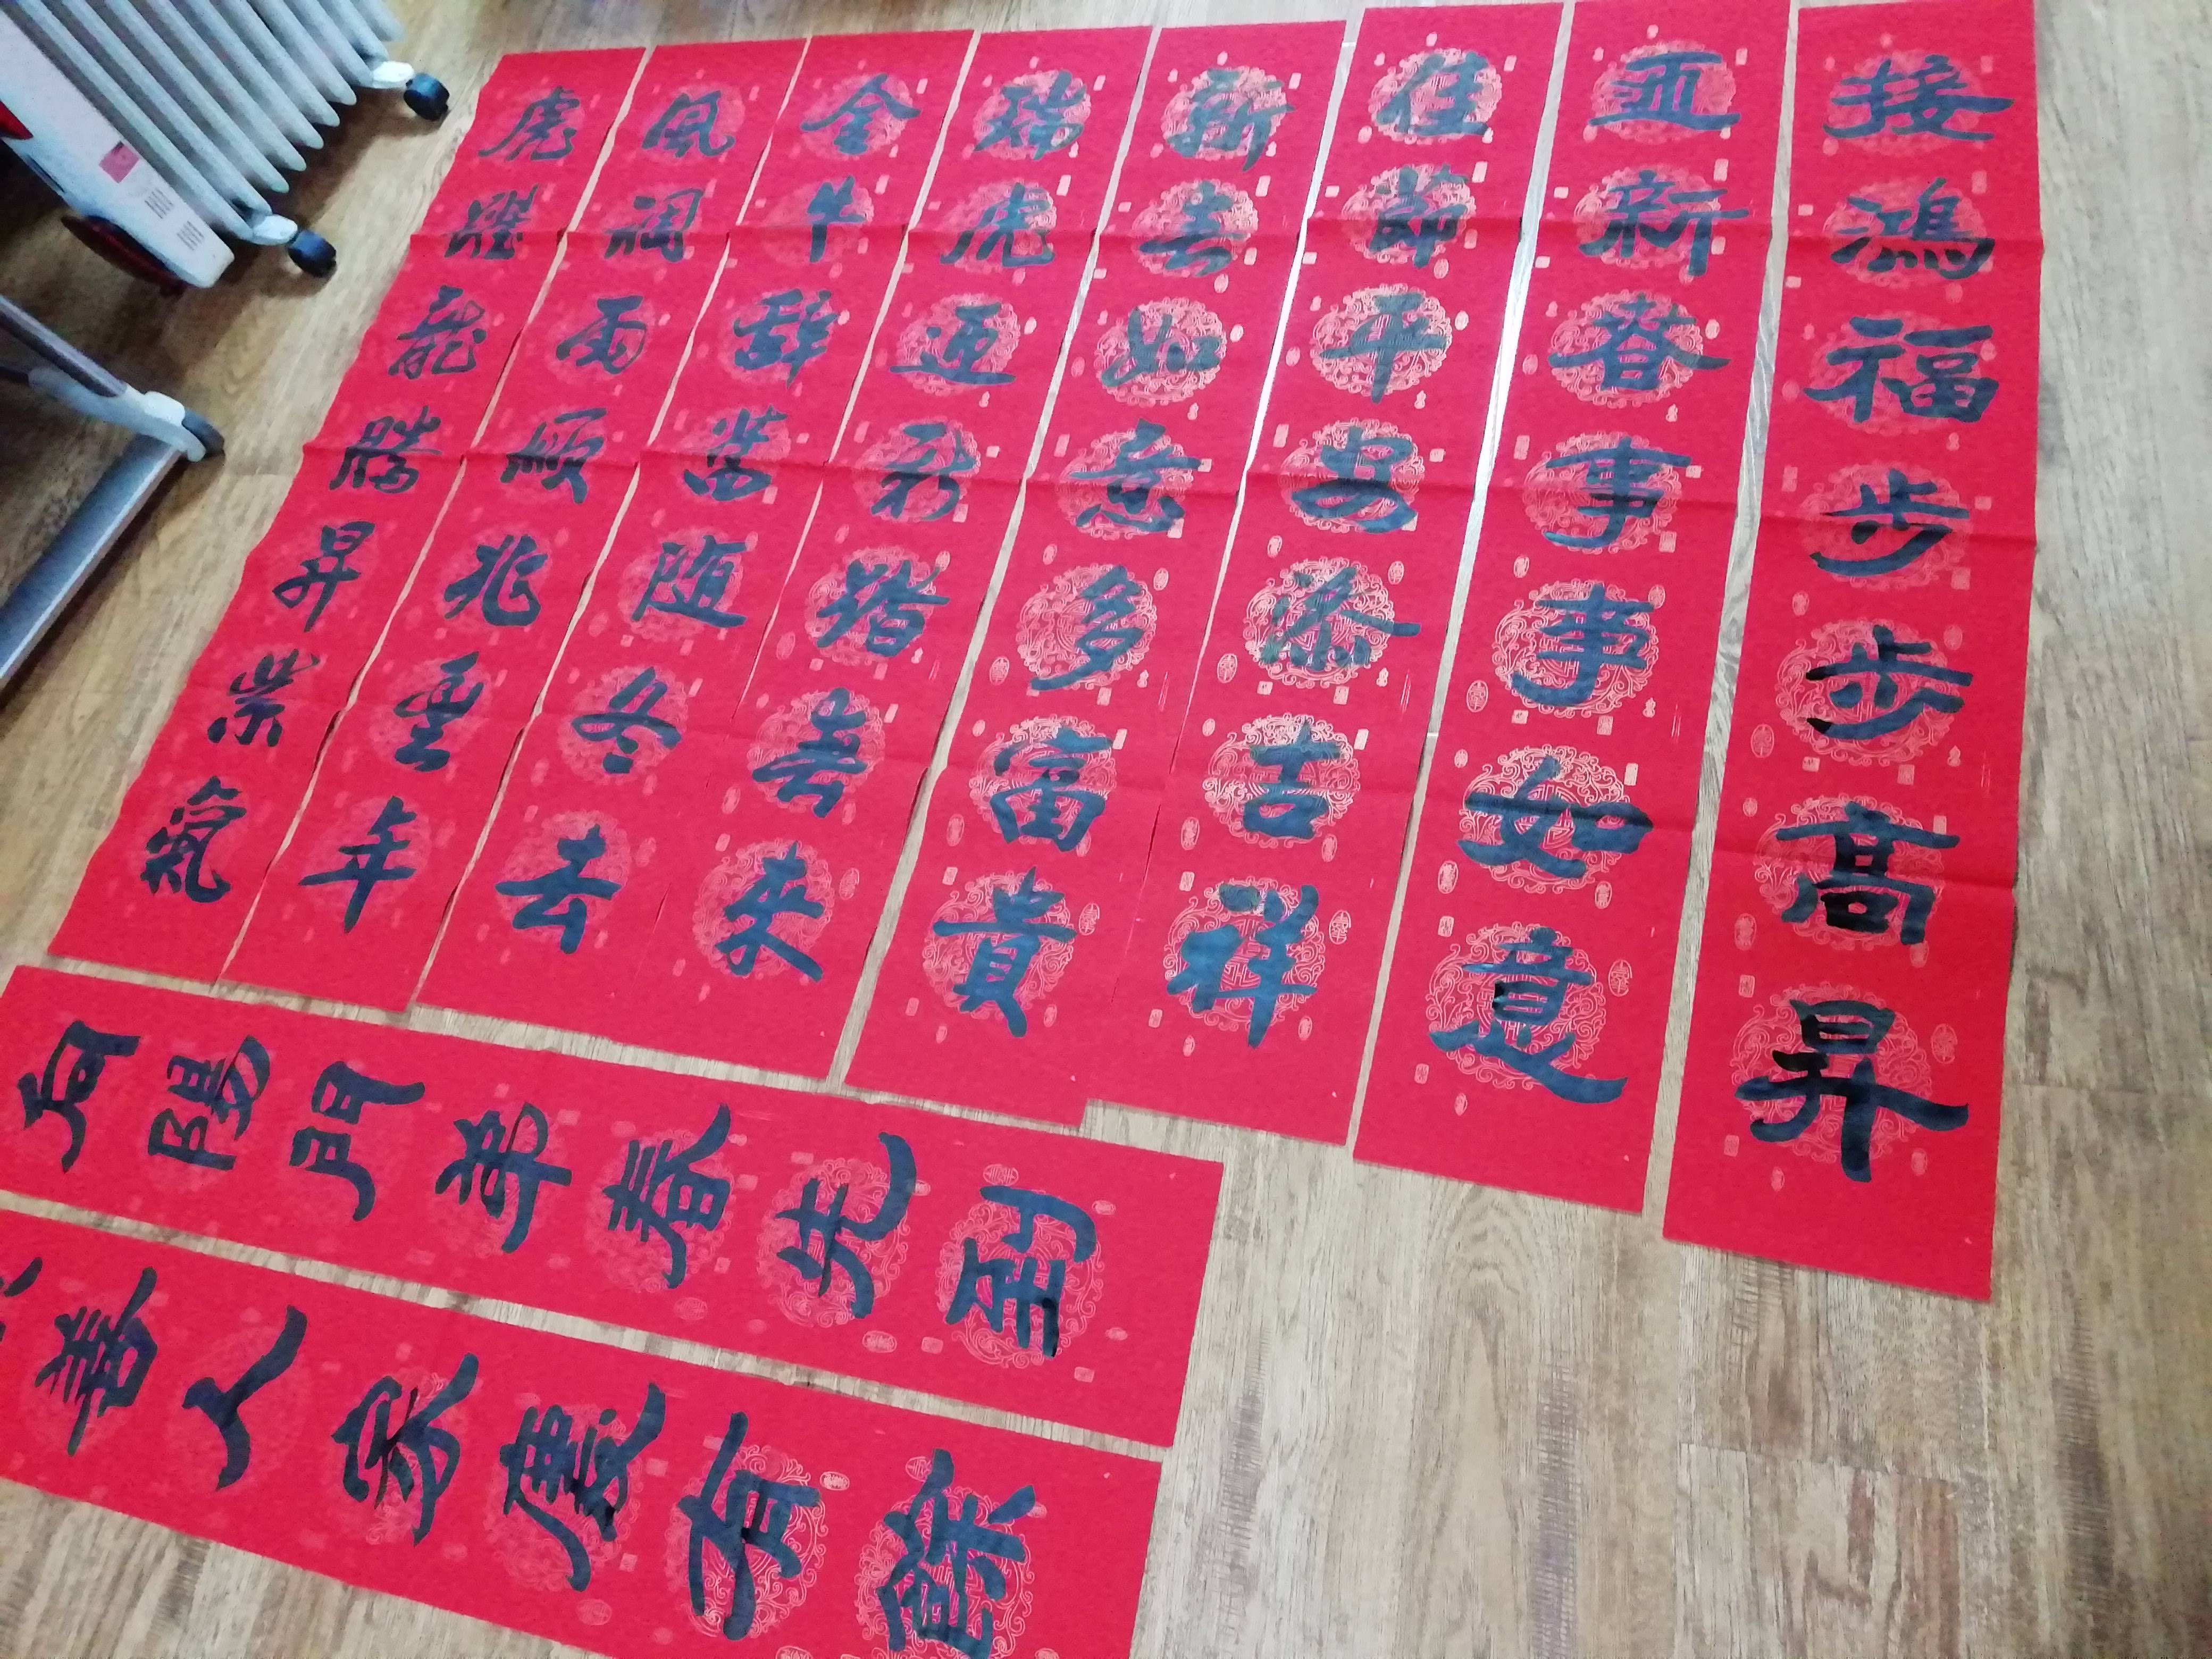 接鴻福步步高昇
迎新春事事如意
佳節平安添吉祥
新如意多富貴
瑞虎迎新踏春來
金牛辭舊随冬去
風調雨順兆年
虎躍龍騰昇紫氣
向陽門第春先到
善人家慶有餘